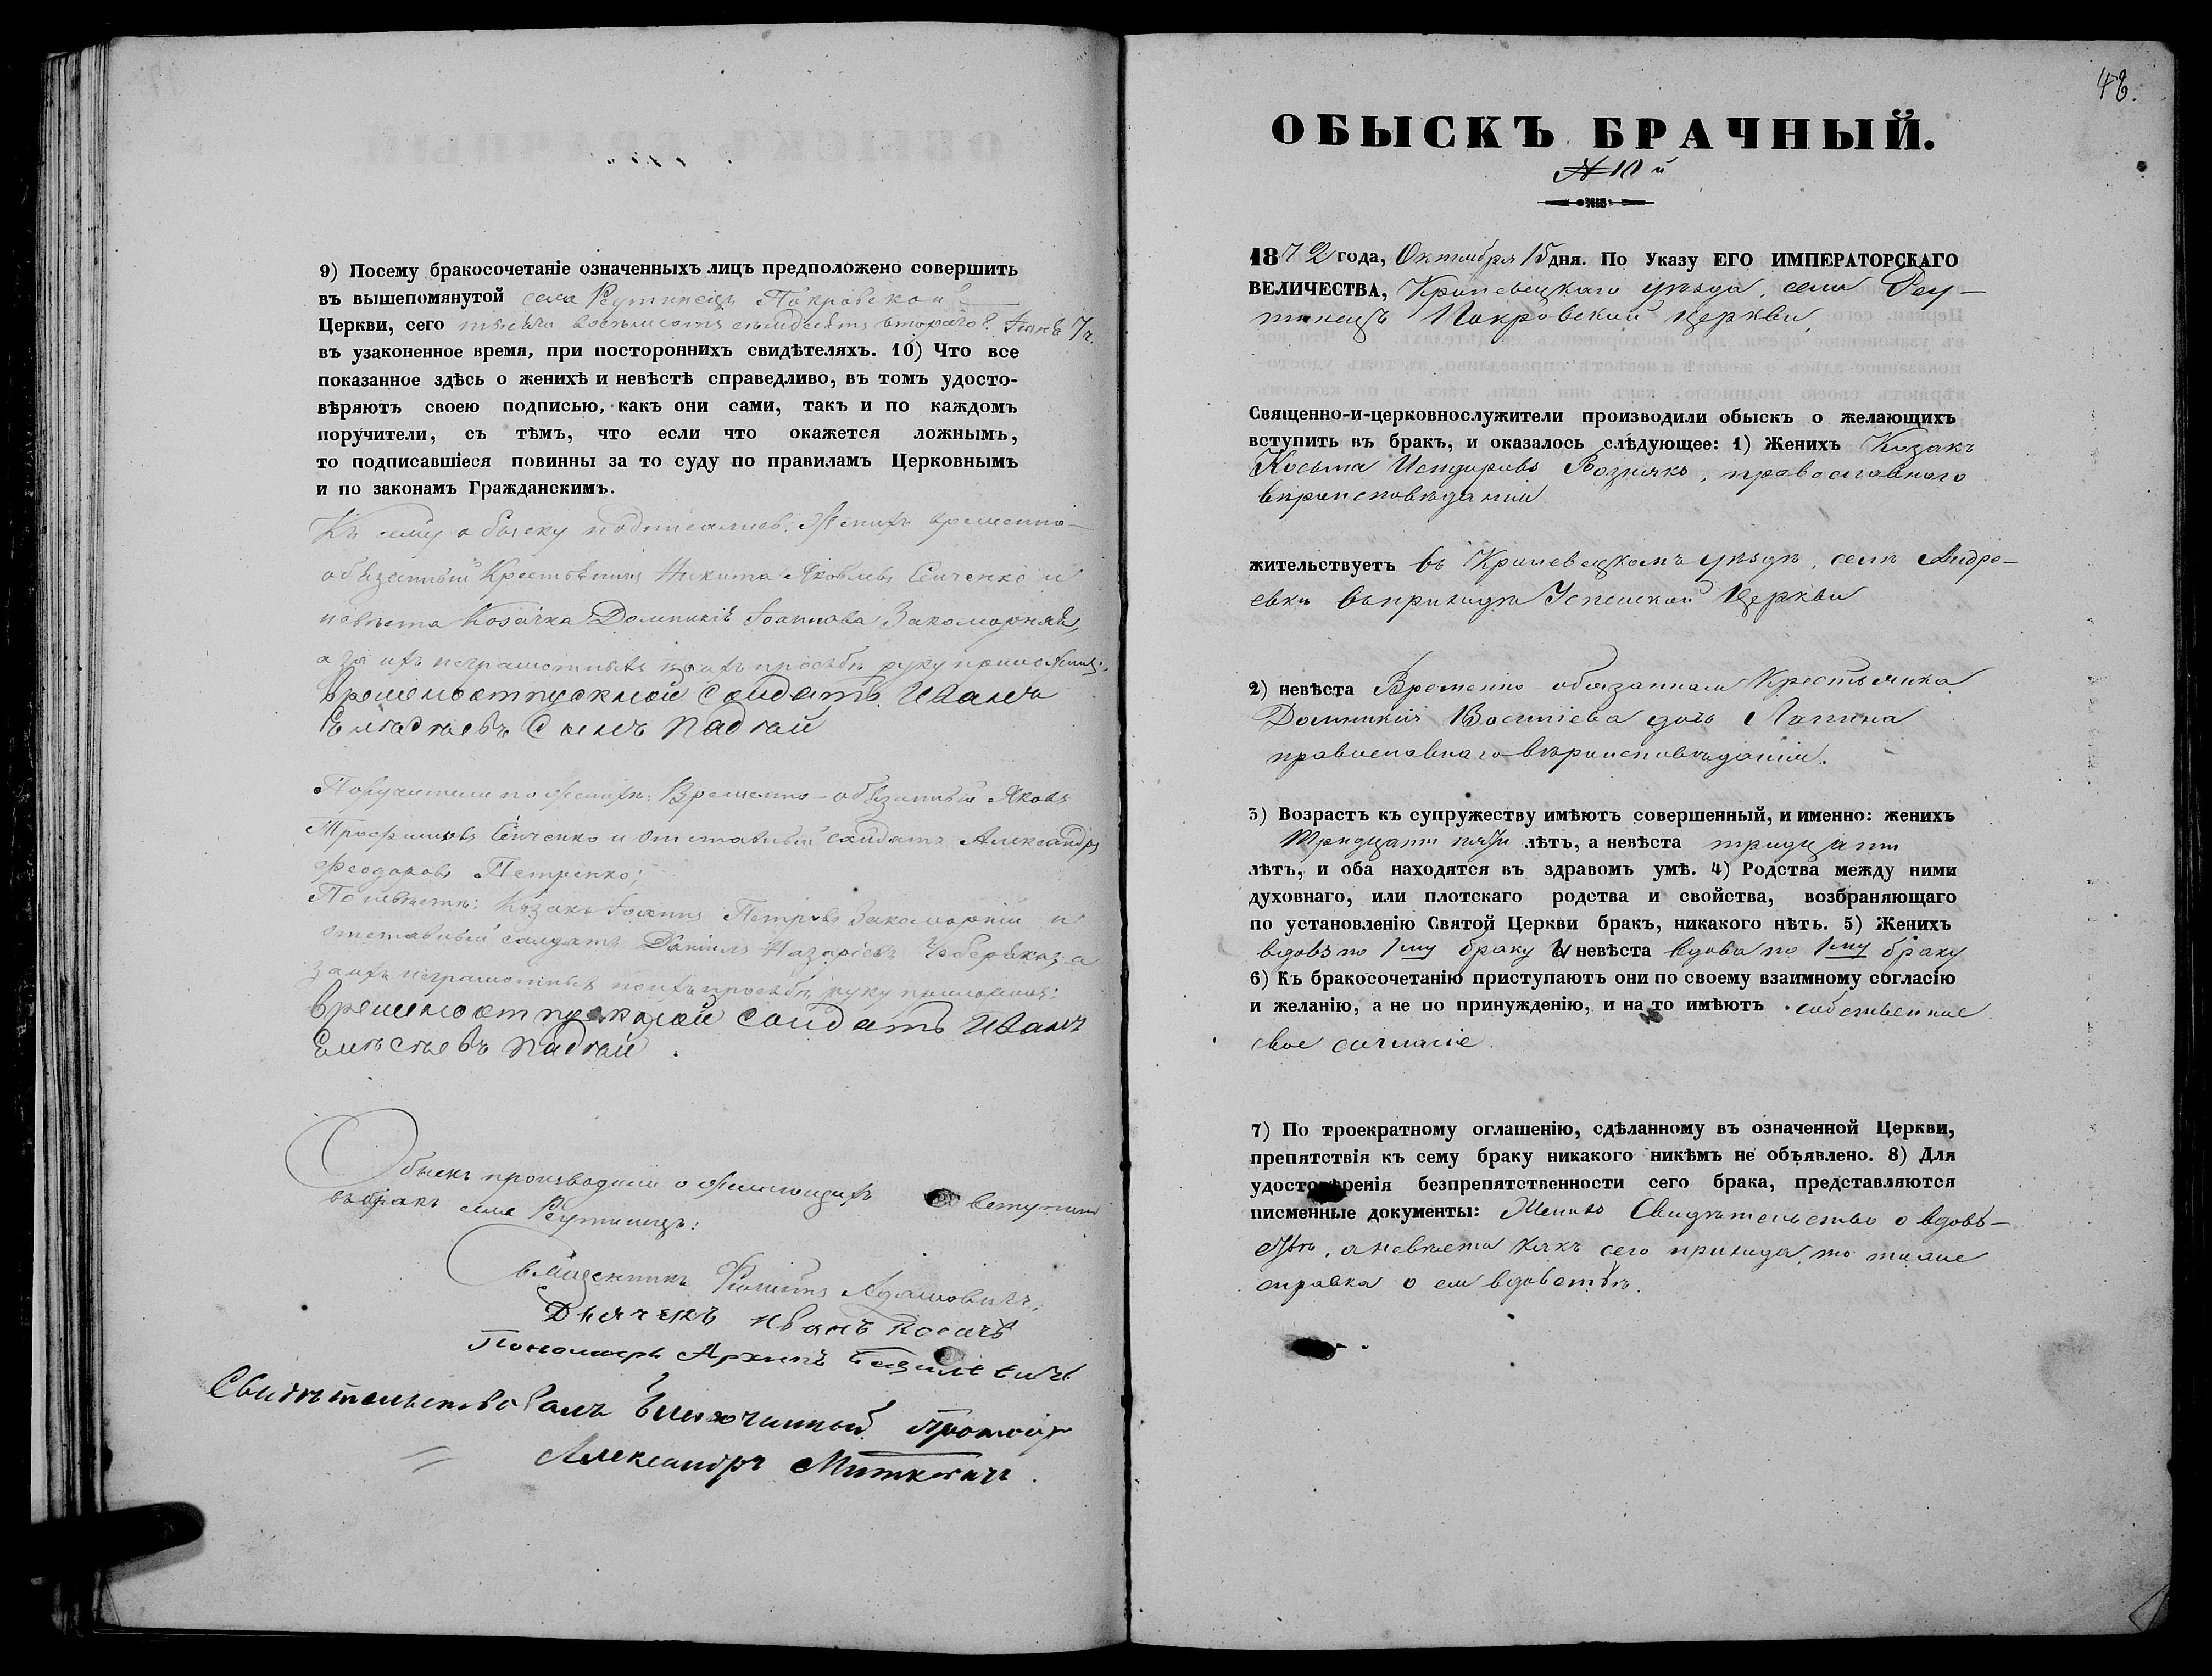 9) Посему бракосочетаніе означенныхъ лицъ предположено совершить
въ вышепомянутой села Реутинецъ Покровской
Церкви, сего тысяча восемьсотъ семьдесятъ второго г.
въ узаконенное время, при постороннихъ свидѣтеляхъ. 10) Что все
показанное здѣсь о женихѣ и невѣстѣ справедливо, въ томъ удосто-
вѣряютъ своею подписью, какъ они сами, такъ и по каждомъ
поручители, съ тѣмъ, что если что окажется ложнымъ,
то подписавшіеся повинны за то суду по правиламъ Церковнымъ
и по законамъ Гражданскимъ.
Къ сему обыску подписались: Женихъ временно-
обязанный Крестьянинъ Никита Яковлевъ Сенченко и
невѣста Козачка Домникія Іоаннова Закоморная,
а за ихъ неграмотныхъ по ихъ просьбѣ руку приложилъ:
временоотпускной солдатъ Иванъ
сынъ Падгай
Поручители по женихѣ: Временно-обязанный Яковъ
Трофимовъ Сенченко и отставный солдатъ Александръ
Феодоровъ Петренко;
По невѣстѣ: Козакъ Іоаннъ Петровъ Закоморній и
отставный солдатъ Даніилъ Назаріевъ а
за ихъ неграмотныхъ по ихъ просьбѣ руку приложилъ:
временоотпускной солдатъ Иванъ
Падгай.
Обыскъ производили о желающихъ вступить
въ бракъ села Реутинецъ:
Священникъ Филиппъ Адамовичъ,
Дьячекъ Иванъ Косачъ
Пономарь Архипъ Базилевичъ
Свидѣтельствовалъ Благочинный Протоіер
Александръ Миткевичъ.
48.
ОБЫСКЪ БРАЧНЫЙ.
№ 10й
1872 года, Октября 15 дня. По Указу ЕГО ИМПЕРАТОРСКАГО
ВЕЛИЧЕСТВА, Кролевецкаго уѣзда, села Реу-
тинецъ Покровской церкви,
Священно-и-церковнослужители производили обыскъ о желающихъ
вступить въ бракъ, и оказалось слѣдующее: 1) Женихъ Козакъ
Косьма Исидоровъ Вознякъ, православнаго
вѣроисповѣданія
жительствуетъ въ Кролевецкомъ уѣздѣ, селѣ Андре-
евки въ приходѣ Успенской Церкви
2) невѣста Временно-обязанная Крестьянка
Домникія Василіева дочь Лапина
православнаго вѣроисповѣданія.
3) Возрастъ къ супружеству имѣютъ совершенный, и именно: женихъ
тридцати пяти лѣтъ, а невѣста тридцати
лѣтъ, и оба находятся въ здравомъ умѣ. 4) Родства между ними
духовнаго, или плотскаго родства и свойства, возбраняющаго
по установленію Святой Церкви бракъ, никакого нѣтъ. 5) Женихъ
вдовъ по 1му браку и невѣста вдова по 1му браку
6) Къ бракосочетанію приступаютъ они по своему взаимному согласію
и желанію, а не по принужденію, и на то имѣютъ собственное
свое согласіе.
7) По троекратному оглашенію, сдѣланному въ означенной Церкви,
препятствія къ сему браку никакого никѣмъ не объявлено. 8) Для
удостовѣренія безпрепятственности сего брака, представляются
писменные документы: Женихъ Свидѣтельство о вдов-
ствѣ, а невѣста какъ сего прихода, то
справка о ея вдовствѣ.